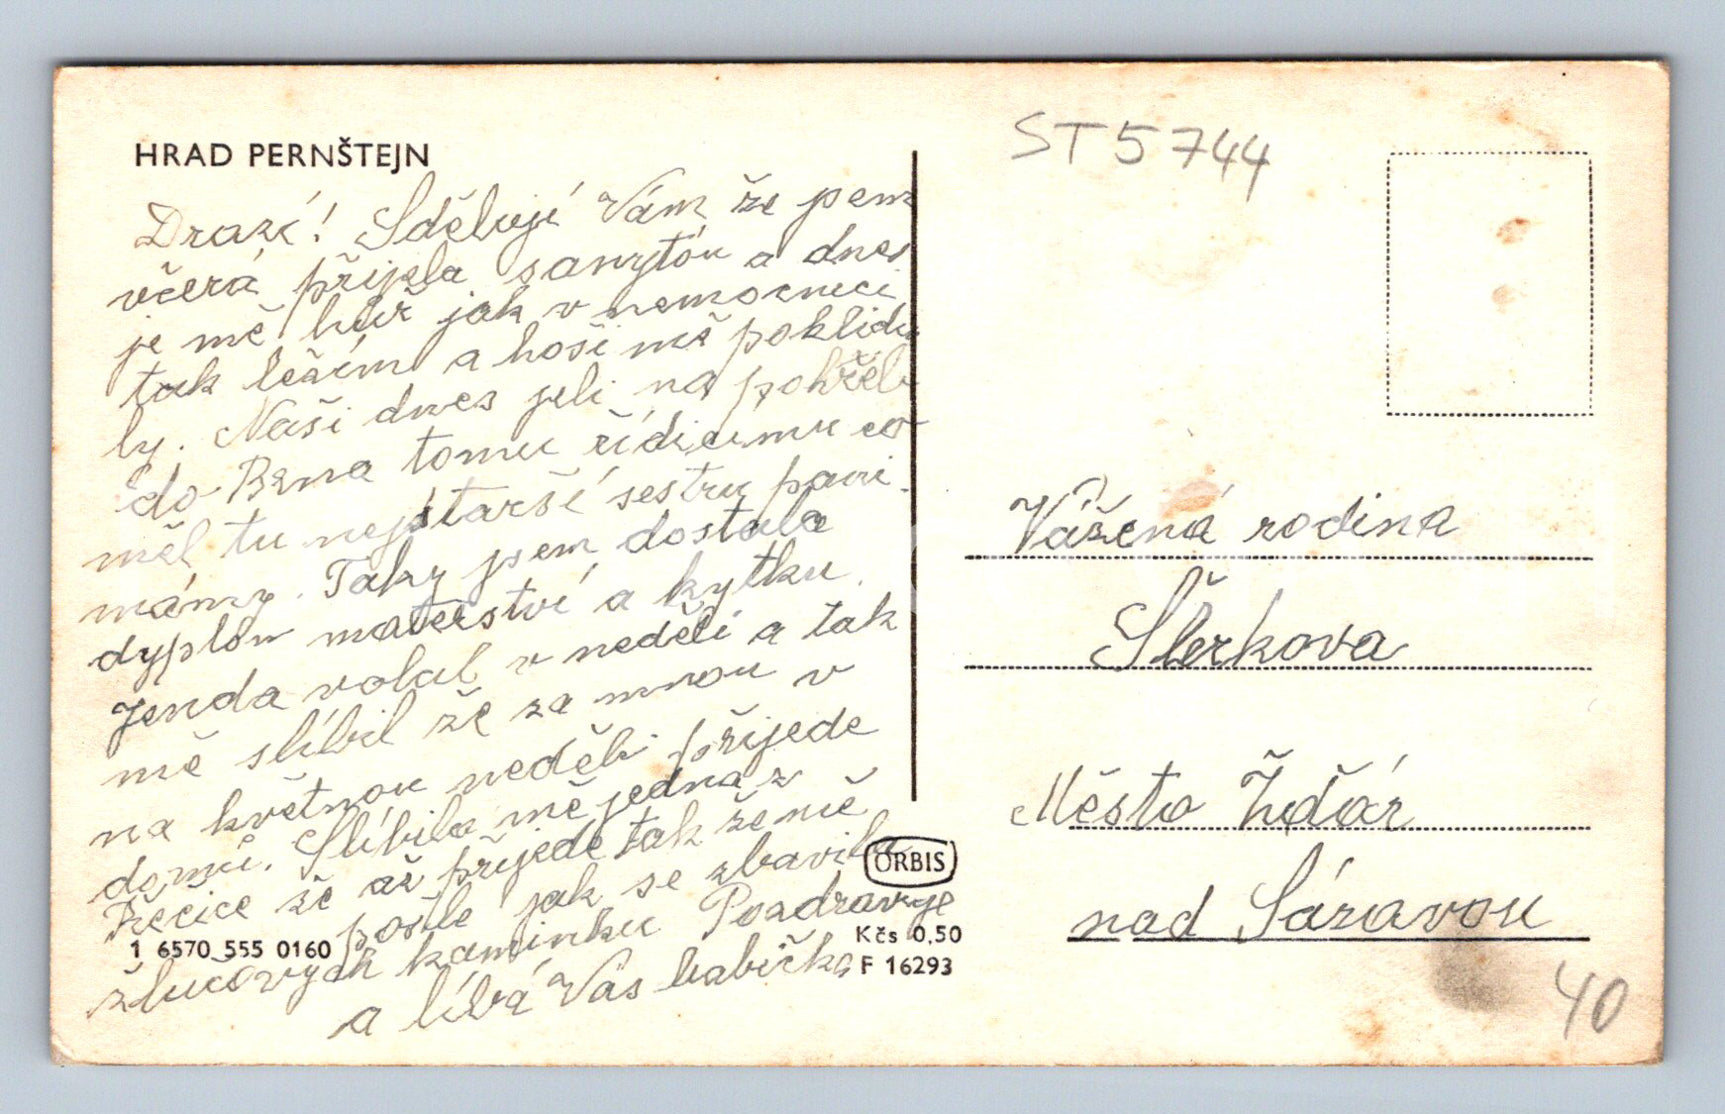 HRAD PERNŠTEJN
Drazí! Sděluji Vám že jsem
včerá přijela sanytou a dnes
je mě hůř jak v nemocnici
tak ležím a hoši mě poklidi
ly. Naši dnes jeli na pohřeb
do Brna tomu řídicimu co
měl tu nejstarší sestru paní
mámy. Taky jsem dostala
dyplom mateřství a kytku.
Jenda volal v neděli a tak
mě slíbil že za mnou v
na květnou neděli přijede
domů. Slíbila mě jedna z
Řečice že až přijede tak že mě
pošle jak se zbavila
žlucových kamínku Pozdravuje
a líbá Vás babička
1 6570 555 0160
ORBIS
Kčs 0,50
F 16293
ST5744
Vážená rodina
Šterkova
Město Žďár
nad Sázavou
40